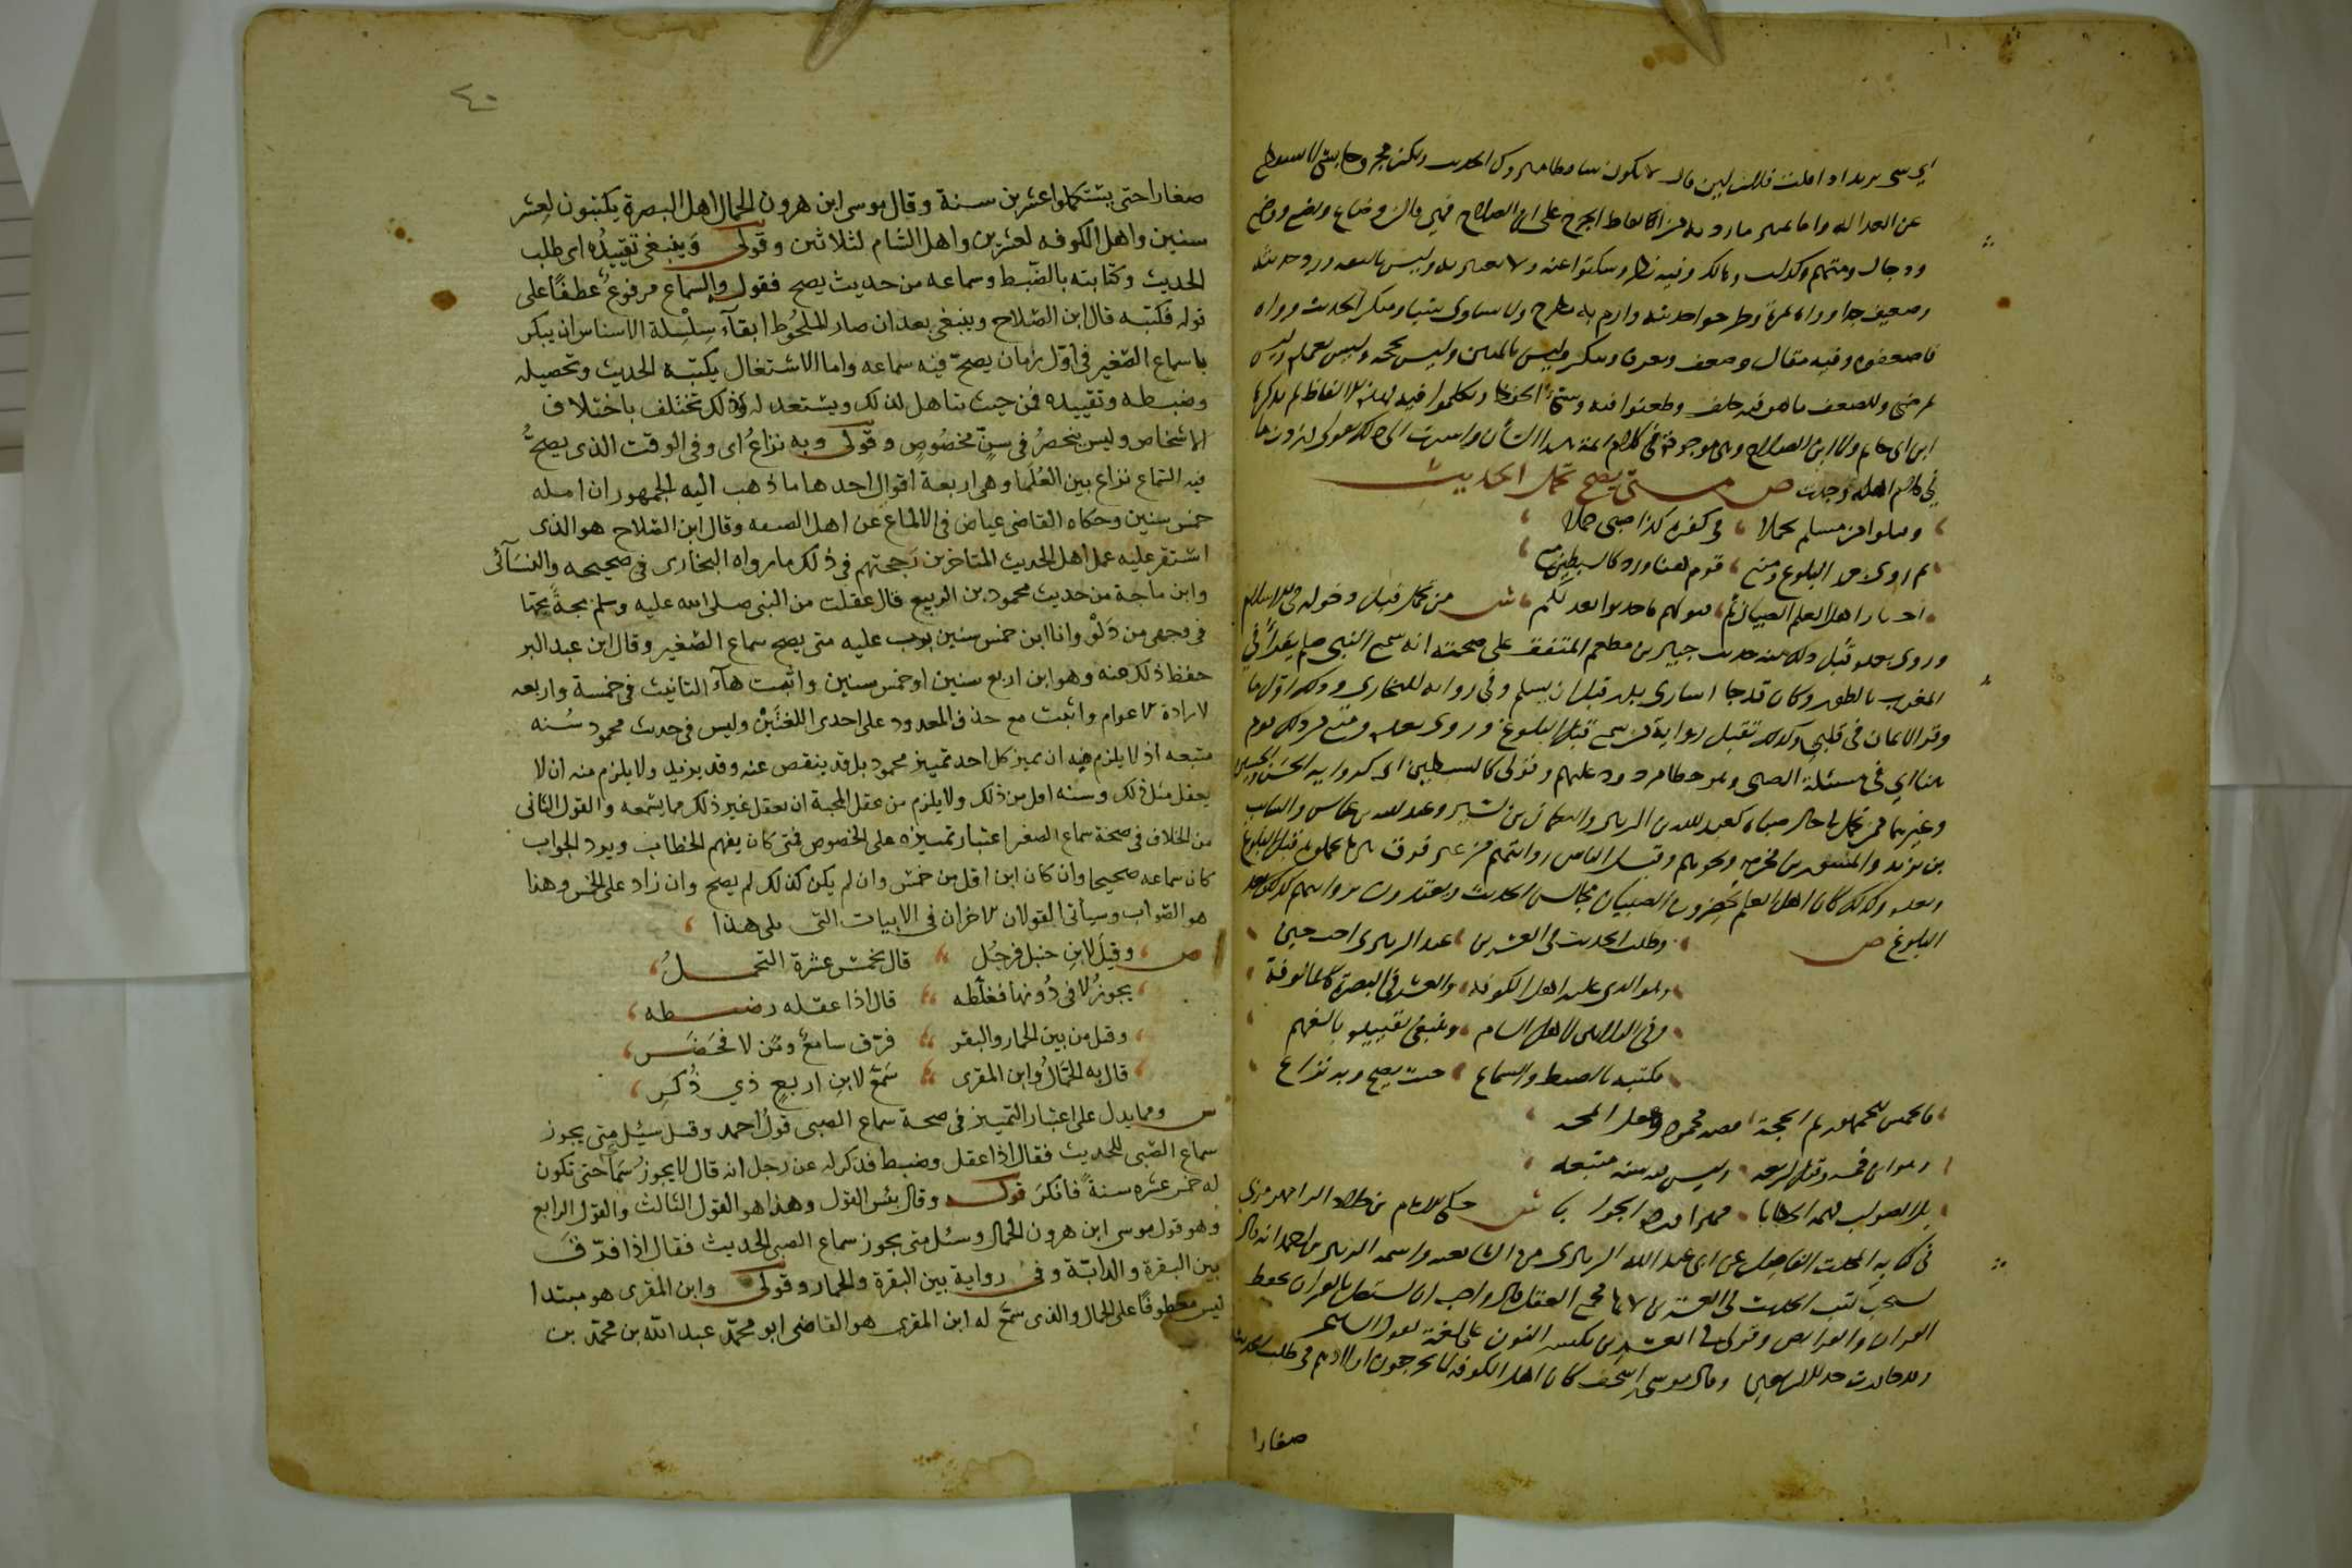 اي شي يريد اذا قلت فلان لين قال لا يكون ساقطا متروك الحديث ولكن مجروحا بشي لا يسقط
عن العدالة واما تمييز ما زدته من الفاظ الجرح على ابن الصلاح فهي فالن وضاع ويضع ووضع
ودجال ومتهم وهالك وفيه نظر وسكتوا عنه ولا يعتبر به وليس بالثقه ورد حديثه
وضعيف جدا وواه بمرة وطرحوا حديثه وارم به ومطرح ولا يساوى شيا ومنكر الحديث وواه
وضعفوه وفيه مقال وضعف وتعرف وتنكر وليس بالمتين وليس بحجه وليس بعمده وليس
بمرضى وللضعف ما هو فيه خلف وطعنوا فيه وسيئ الحفظ وتكلموا فيه فهذه الالفاظ لم يذكرها
ابن ابى حاتم ولا ابن الصلاح وهى موجودة فى كلام ائمة هذا الشأن واشرت الى ذلك بقولى وزدت ما
في كلام اهله وجدت ص متى يصح تحمل الحديث
وقبلوا من مسلم تحملا فى كفره كذا صبى حملا
ثم روى بعد البلوغ ومنع قوم هنا ورد كالسبطين مع
احضار اهل العلم للصبيان ثم قبولهم ما حدثوا بعد الحلم ش من تحمل قبل دخوله فى الاسلام
وروى بعده قبل ذلك منه حديث جبير بن مطعم المتفق على صحته انه سمع النبى صلعم يقرأ في
المغرب بالطور وكان قد جا فى اسارى بدر قبل ان يسلم وفى رواية للبخارى وذلك اول ما
وقر الايمان فى قلبي وكذلك تقبل رواية من سمع قبل البلوغ وروى بعده ومنع من ذلك قوم
هنا اي فى مسئلة الصبى وهو خطا مردود عليهم وقولى كالسبطين اى كروايه الحسن والحسين
وغيرهما ممن تحمل فى حال صباه كعبد الله بن الزبير والنعمان بن بشير وعبد الله بن عباس والسائب
بن يزيد والمسور بن مخرمه ونحوهم وقبل الناس روايتهم من غير فرق بين ما تحملوه قبل البلوغ
وبعده وكذلك كان اهل العلم يحضرون الصبيان مجالس الحديث ويعتدون بروايتهم لذلك بعد
البلوغ ص وطلب الحديث فى العشرين عند الزبيرى احب حين
وهو الذى عليه اهل الكوفه والعشر فى البصرة كالمالوفة
وفى الثلاثين لاهل الشام وينبغى تقييده بالفهم
فكتبه بالضبط والسماع حيث يصح وبه نزاع
فالخمس للجمهور ثم الحجة قصه محمود وعقل المجه
وهو ابن خمسه وقيل اربعه وليس فيه سنه متبعه
بل الصواب فهمه الخطابا مميزا ورده الجوابا ش حكى الامام بن خلاد الرامهرمزى
فى كتابه المحدث الفاصل عن ابى عبد الله الزبيرى من الشافعيه واسمه الزبير بن احمد انه قال
يستحب كتب الحديث فى العشرين لانها مجمع العقل قال واحب ان يشتغل دونها بحفظ
القران والفرايض وقولى فى العشرين بكسر النون على لغة كقول الشاعر
وقد جاوزت حد الاربعين وقال موسى بن اسحق كان اهل الكوفه لا يخرجون اولادهم فى طلب الحديث
صغارا
٤٠
صغارا حتى يستكملوا عشرين سنة وقال موسى ابن هرون الحمال اهل البصرة يكتبون لعشر
سنين واهل الكوفه لعشرين واهل الشام لثلاثين وقولى وينبغى تقييده اى طلب
الحديث وكتابته بالضبط وسماعه من حديث يصح فقول والسماع مرفوع عطفا على
قوله فكتبه قال ابن الصلاح وينبغى بعد ان صار الملحوظ ابقآء سلسلة الاسناد ان يبكر
باسماع الصغير فى اول زمان يصح فيه سماعه واما الاشتغال بكتبة الحديث وتحصيله
وضبطه وتقييده فمن حيث يتاهل لذلك ويستعد له وذلك تختلف باختلاف
الاشخاص وليس ينحصر فى سن مخصوص وقولى وبه نزاع اى وفى الوقت الذى يصح
فيه السماع نزاع بين العلما وهى اربعة اقوال احدها ما ذهب اليه الجمهور ان اقله
خمس سنين وحكاه القاضى عياض فى الالماع عن اهل الصنعه وقال ابن الصلاح هو الذى
استقر عليه عمل اهل الحديث المتاخرين وحجتهم فى ذلك ما رواه البخارى فى صحيحه والنسآئى
وابن ماجة من حديث محمود بن الربيع قال عقلت من النبى صلى الله عليه وسلم مجة مجها
فى وجهى من دلو وانا ابن خمس سنين بوب عليه متى يصح سماع الصغير وقال ابن عبد البر
حفظ ذلك عنه وهو ابن اربع سنين او خمس سنين واثبت هآء التانيث فى خمسة واربعه
لارادة الاعوام واثبت مع حذف المعدود على احدى اللغتين وليس فى حديث محمود سنه
متبعه اذ لا يلزم منه ان يميز كل احد تمييز محمود بل قد ينقص عنه وقد يزيد ولا يلزم منه ان لا
يعقل مثل ذلك وسنه اقل من ذلك ولا يلزم من عقل المجة ان يعقل غير ذلك مما يسمعه والقول الثانى
من الخلاف فى صحة سماع الصغير اعتبار تمييزه على الخصوص فمتى كان يفهم الخطاب ويرد الجواب
كان سماعه صحيحا وان كان ابن اقل من خمس وان لم يكن كذلك لم يصح وان زاد على الخمس وهذا
هو الصواب وسيأتى القولان الاخران فى الابيات التى تلى هذا
ص وقيل لابن حنبل فرجل قال لخمس عشرة التحمل
يجوز لا فى دونها فغلطه قال اذا عقله وضبطه
وقيل من بين الحمار والبقر فرق سامع ومن لا فحضر
قال به الحمال وابن المقرى سمع لابن اربع ذي ذكر
ش ومما يدل على اعتبار التمييز فى صحة سماع الصبى قول احمد وقد سئيل متى يجوز
سماع الصبى للحديث فقال اذا عقل وضبط فذكر له عن رجل انه قال لا يجوز سماعه حتى تكون
له خمس عشره سنة فانكر قوله وقال بئس القول وهذا هو القول الثالث والقول الرابع
وهو قول موسى ابن هرون الحمال وسئل متى يجوز سماع الصبى للحديث فقال اذا فرق
بين البقرة والدابة وفى رواية بين البقرة والحمار وقولى وابن المقرى هو مبتدا
ليس معطوفا على الحمال والذى سمع له ابن المقرى هو القاضى ابو محمد عبد الله بن محمد بن